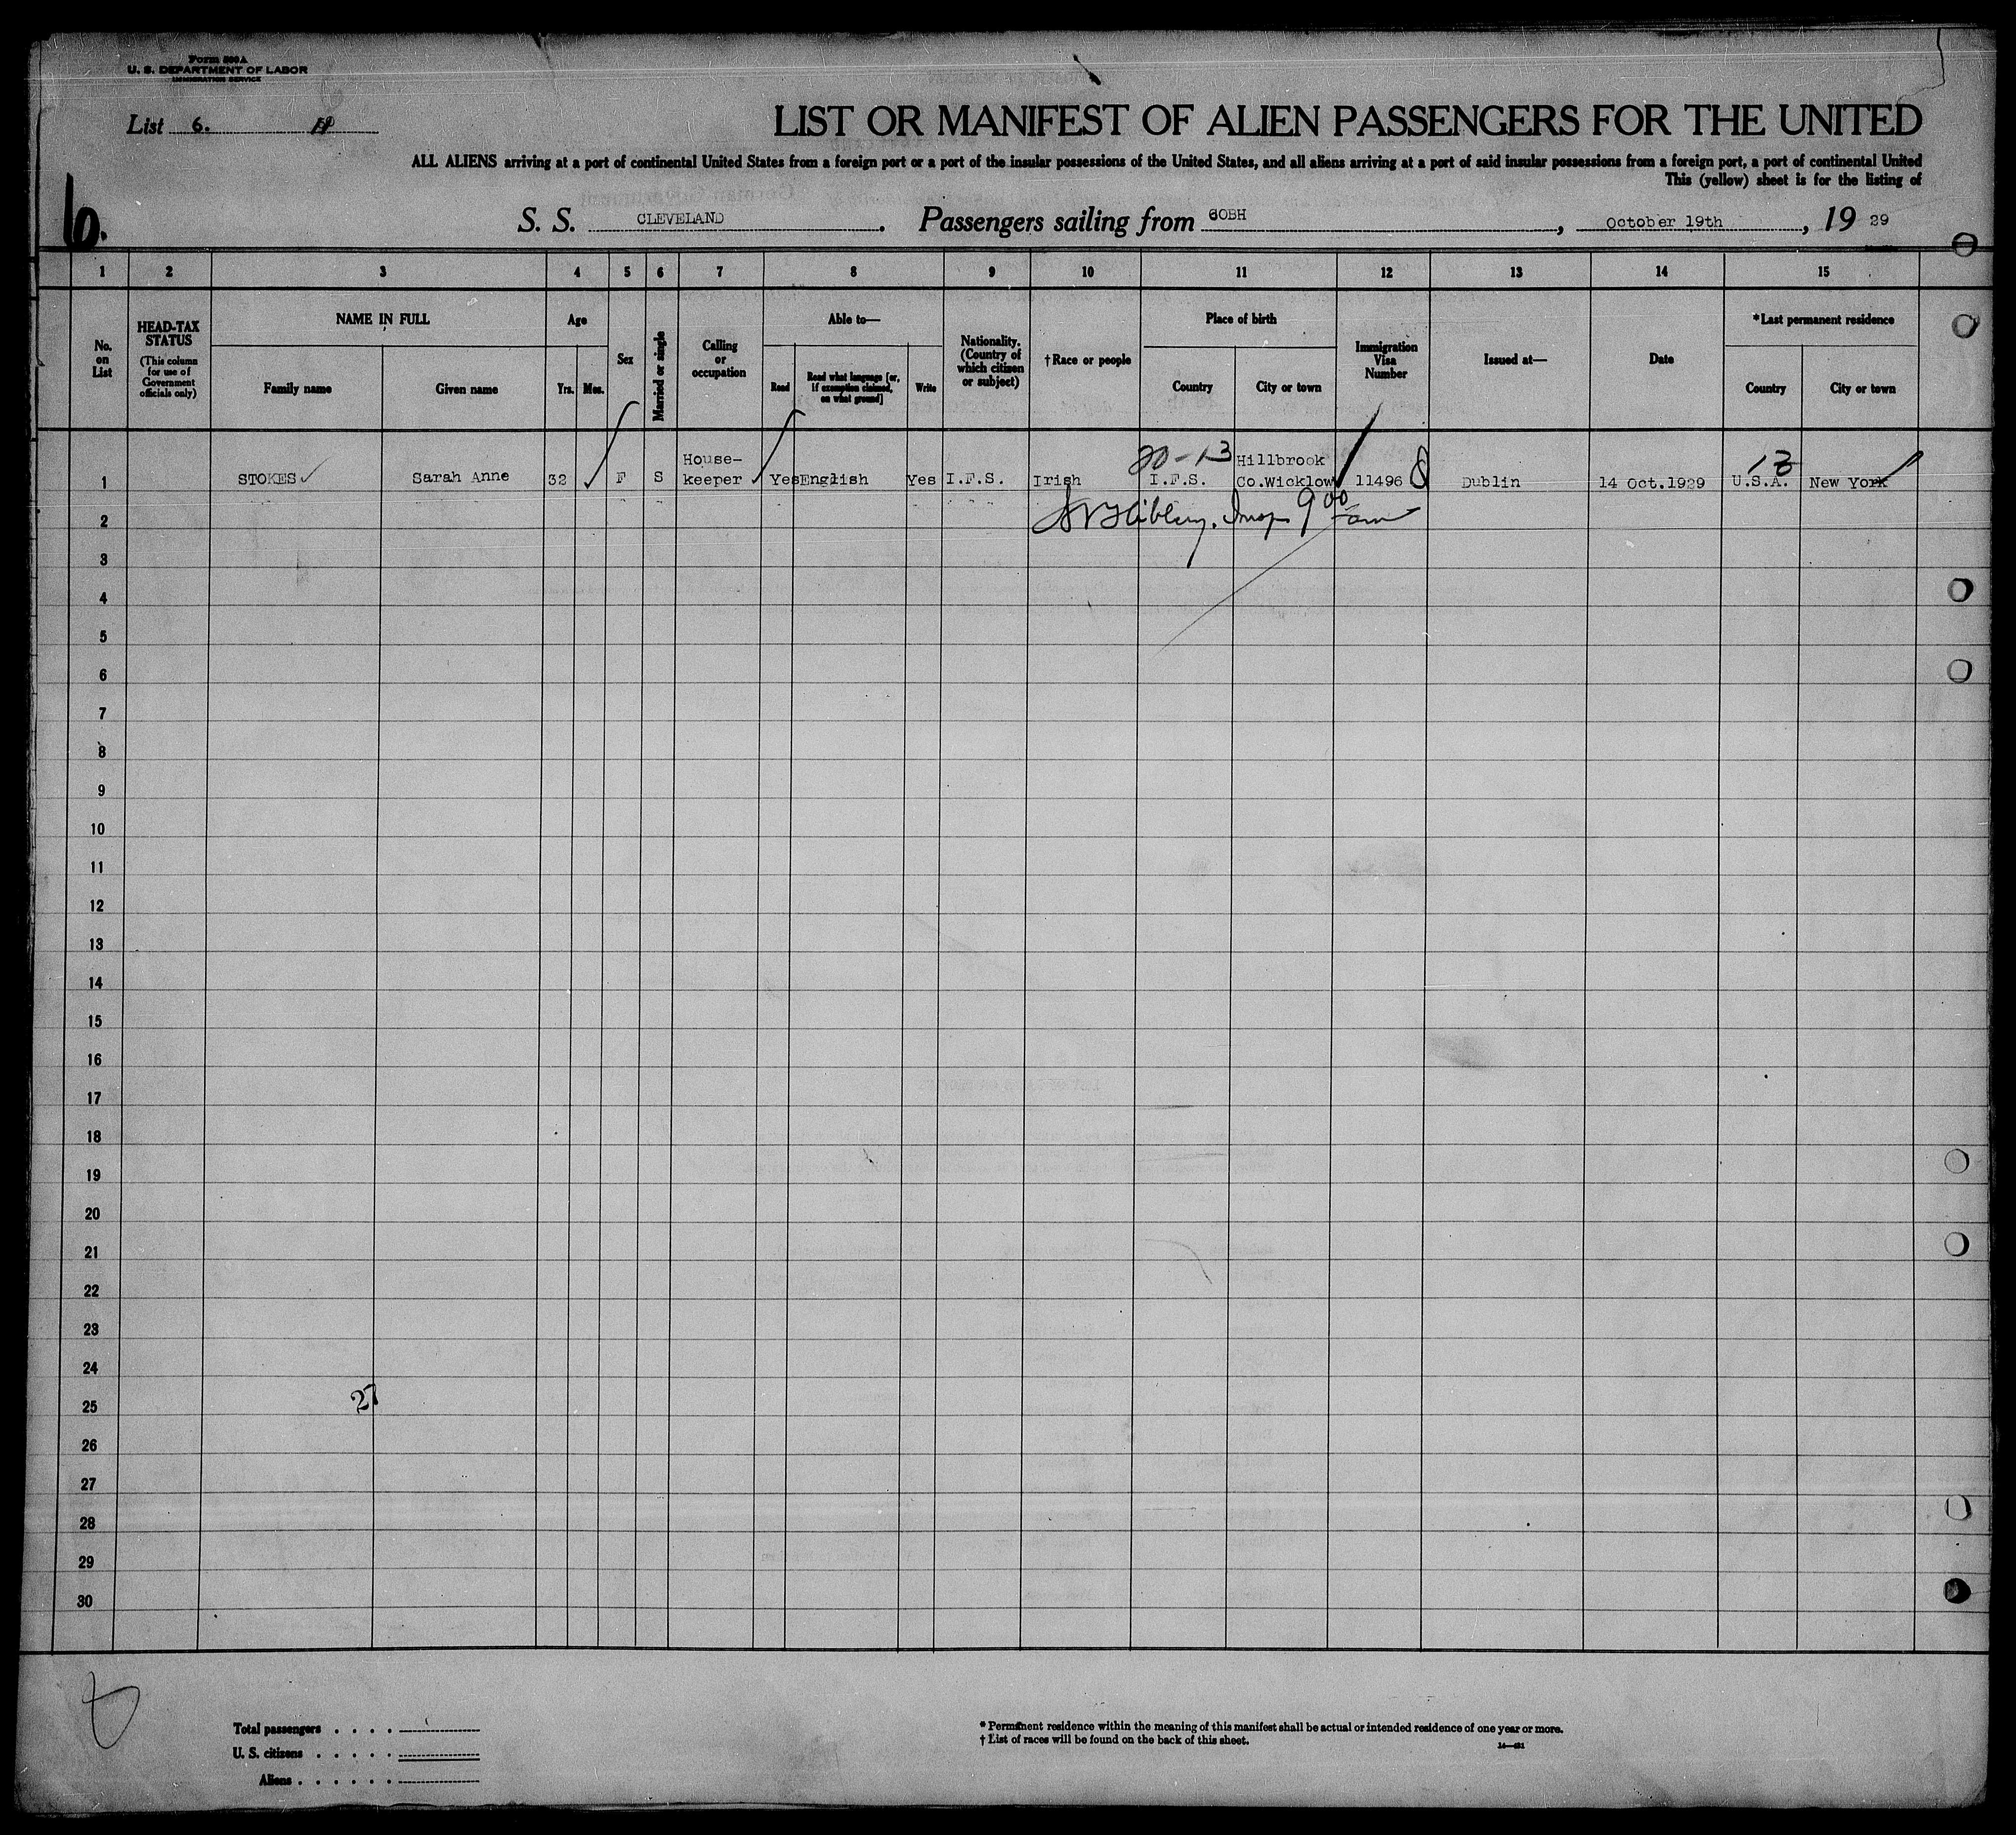 Form 500A
U. S. DEPARTMENT OF LABOR
IMMIGRATION SERVICE
List 6.
LIST OR MANIFEST OF ALIEN PASSENGERS FOR THE UNITED
ALL ALIENS arriving at a port of continental United States from a foreign port or a port of the insular possessions of the United States, and all aliens arriving at a port of said insular possessions from a foreign port, a port of continental United
This (yellow) sheet is for the listing of
6.
S. S. CLEVELAND. Passengers sailing from COBH, October 19th, 1929
1 2 3 4 5 6 7 8 9 10 11 12 13 14 15
No. on List
HEAD-TAX STATUS
(This column for use of Government officials only)
NAME IN FULL
Family name
Given name
Age
Yrs. Mos.
Sex
Married or single
Calling or occupation
Able to—
Read
Read what language [or, if exemption claimed, on what ground]
Write
Nationality. (Country of which citizen or subject)
† Race or people
Place of birth
Country
City or town
Immigration Visa Number
Issued at—
Date
* Last permanent residence
Country
City or town
20-13
1 STOKES Sarah Anne 32 F S House-keeper Yes English Yes I.F.S. Irish I.F.S. Hillbrook Co.Wicklow 11496 Dublin 14 Oct.1929 U.S.A. New York
Insp 9 00 am
2
3
4
5
6
7
8
9
10
11
12
13
14
15
16
17
18
19
20
21
22
23
24
27
25
26
27
28
29
30
Total passengers
U. S. citizens
Aliens
* Permanent residence within the meaning of this manifest shall be actual or intended residence of one year or more.
† List of races will be found on the back of this sheet.